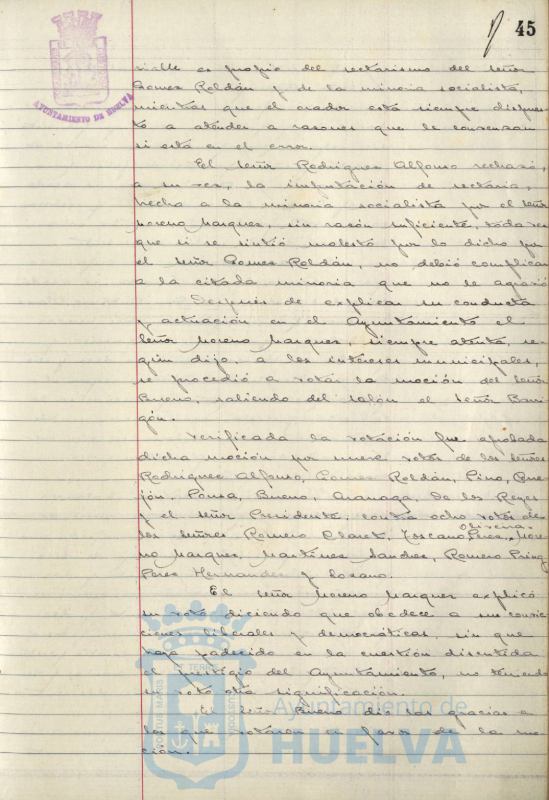 45
AYUNTAMIENTO DE HUELVA
es propio del sectarismo del señor
Gomez Roldán y de la minoria socialista,
mientras que el orador está siempre dispues-
to a atender a razones que le convenzan
si está en el error.
El señor Rodriguez Alfonso rechazó,
a su vez, la imputación de sectaria,
hecha a la minoria socialista por el señor
Moreno Marquez, sin razón suficiente, toda vez
que si se sintió molesto por lo dicho por
el señor Gomez Roldán, no debió complicar
a la citada minoria que no le agravió
Después de explicar su conducta
y actuación en el Ayuntamiento el
señor Moreno Marquez, siempre atenta, se-
gún dijo, a los intereses municipales,
se procedió a votar la moción del señor
Bueno, saliendo del salón el señor Barri-
gón.
Verificada la votación fue aprobada
dicha moción por nueve votos de los señores
Rodriguez Alfonso, Gomez Roldán, Pino, Que-
jón, Ponsa, Bueno, De los Reyes
y el señor Presidente, contra ocho votos de
los señores Romero Claret, Toscano Perez, Olivera, More-
no Marquez, Martinez Sanchez, Romero Pring
Perez Hernandez y Lozano.
El señor Moreno Marquez explicó
su voto diciendo que obedece a sus convic-
ciones liberales y democráticas, sin que
haya padecido en la cuestión discutida
el prestigio del Ayuntamiento, no teniendo
su voto otra significación.
El señor Bueno dió las gracias a
los que votaron en favor de la mo-
ción.
PORTUS MARIS ET TERRE CUSTODIA
Ayuntamiento de
HUELVA